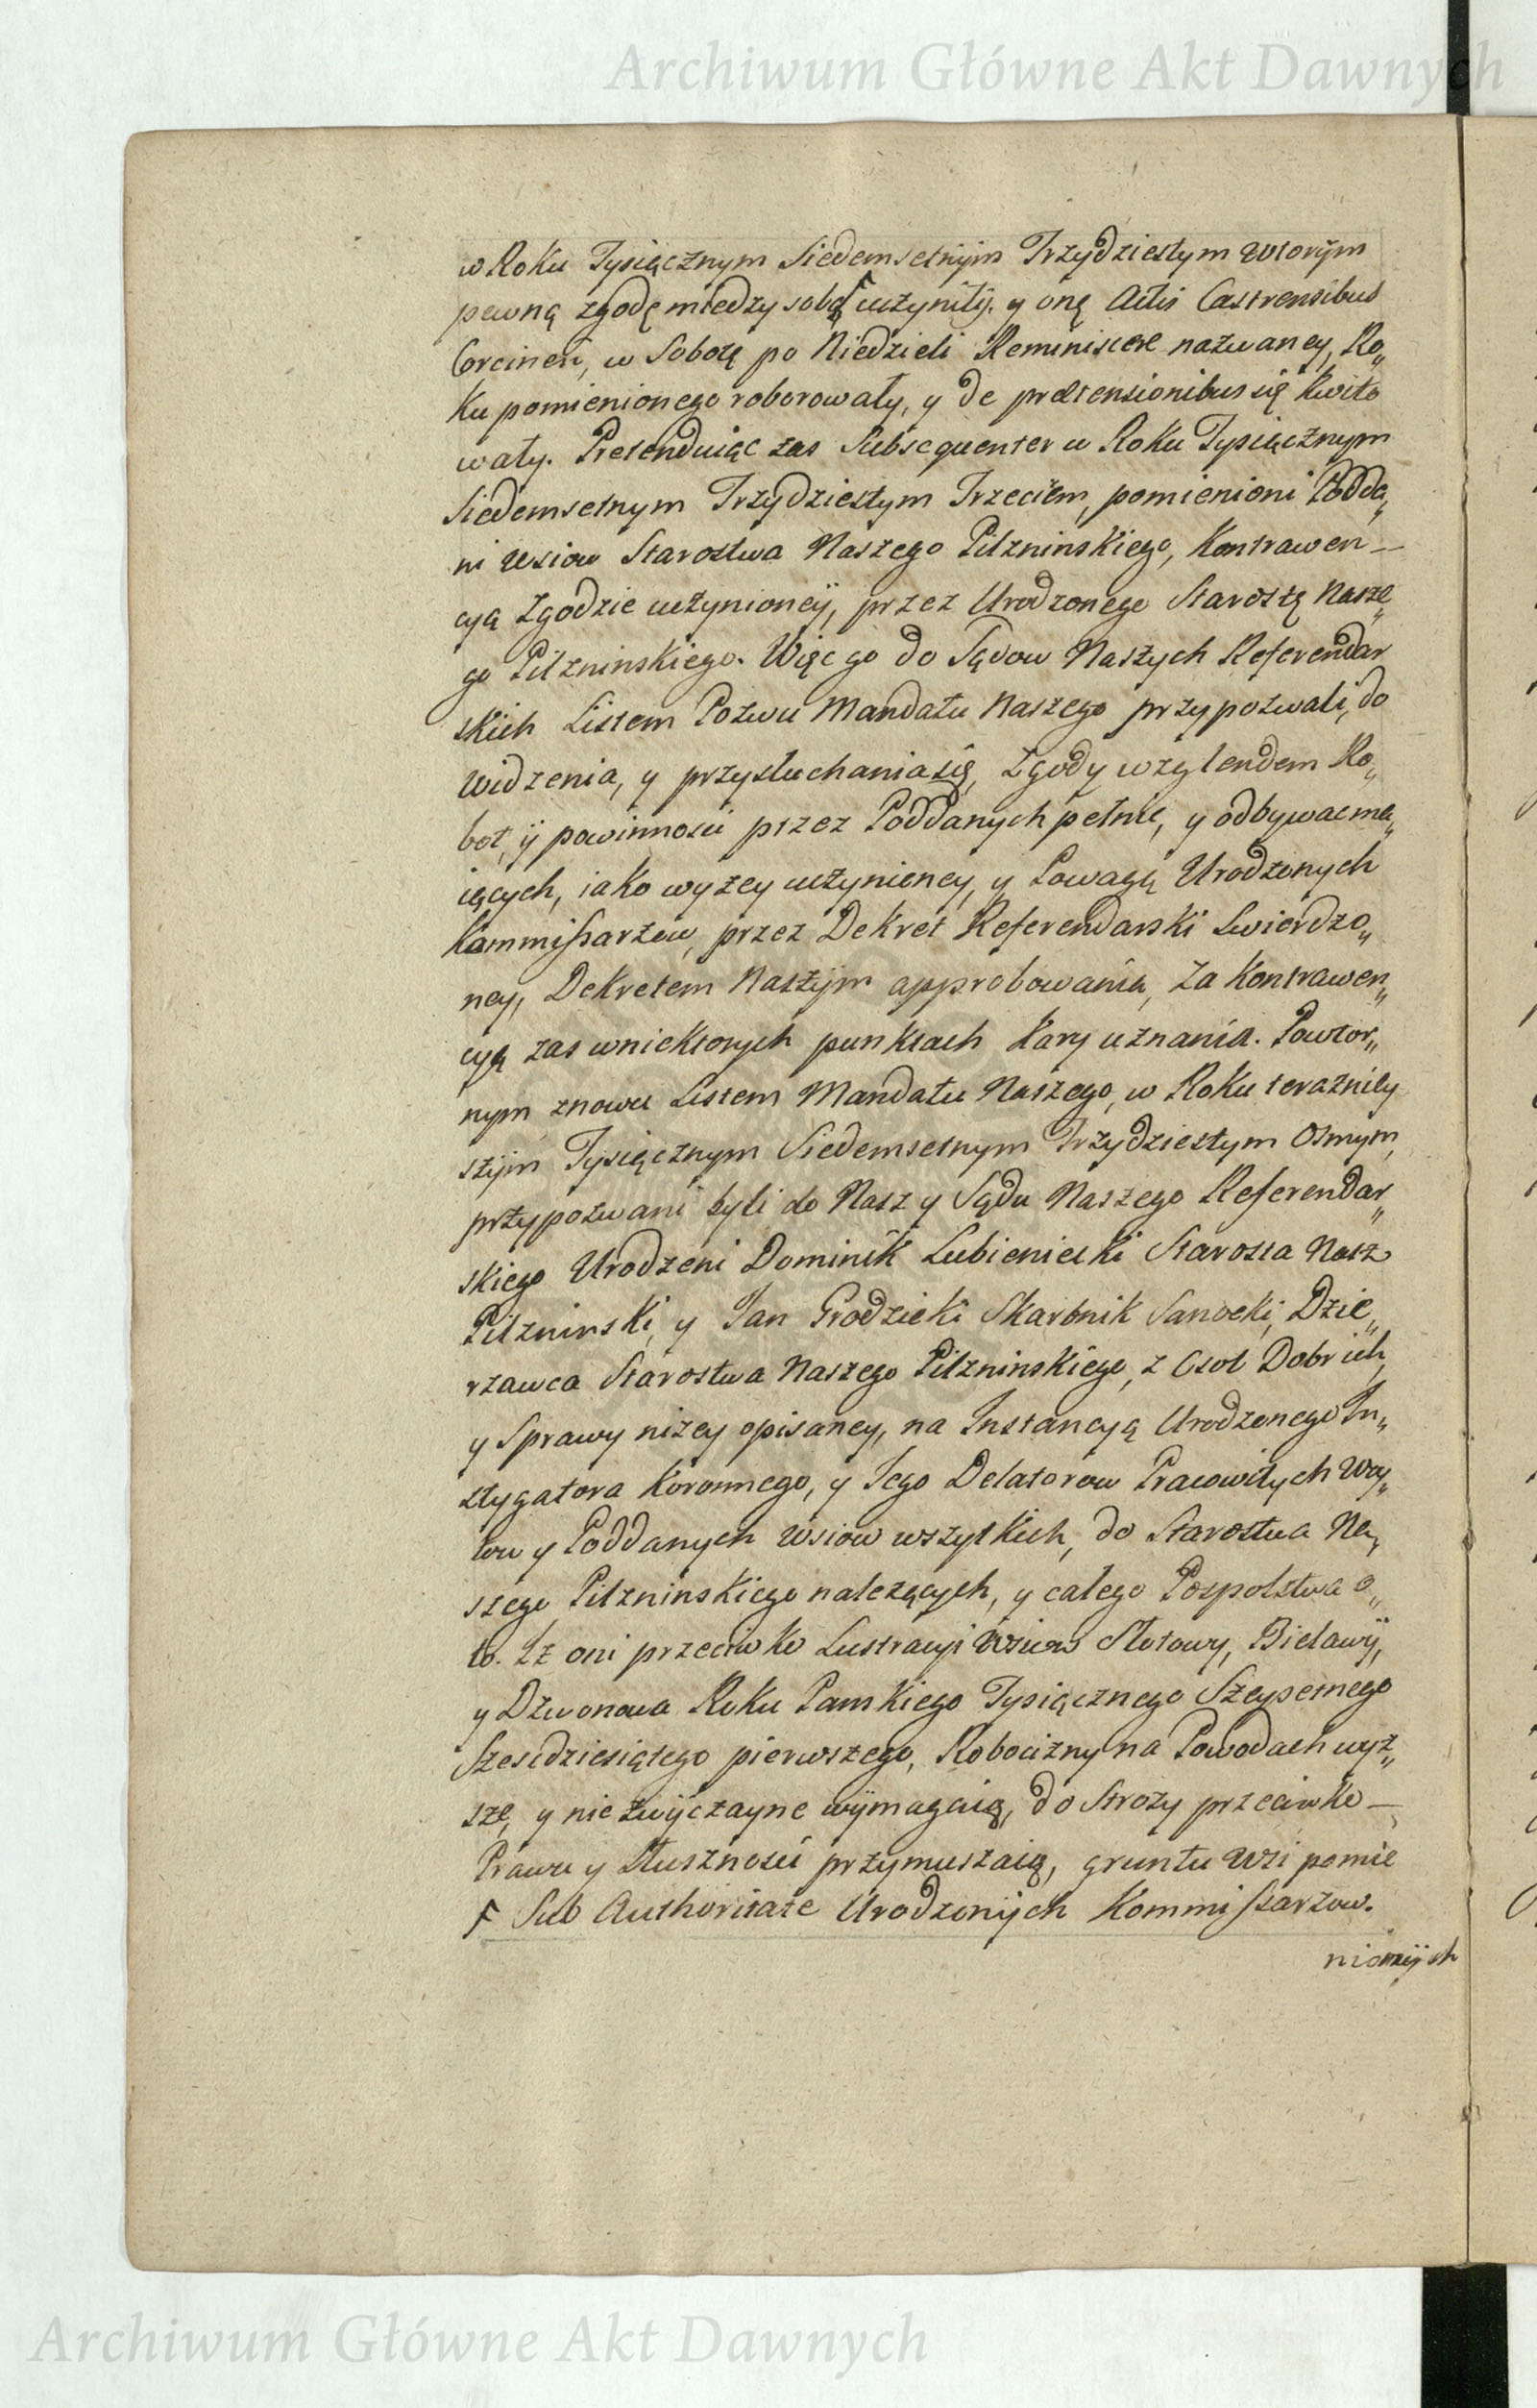 Archiwum Główne Akt Dawnych
w Roku Tysiącznym Siedemsetnym Trzydziestym wtorym
pewną zgodę miedzy sobą ߓ uczyniły. y onę Actis Castrensibus
Corcinen, w Sobotę po Niedzieli Reminiscere nazwaney, Ro„
ku pomienionego roborowały, y de praetensionibus się kwito
wały. Pretenduiąc zas Subsequenter w Roku Tysiącznym
Siedemsetnym Trzydziestym Trzeciem, pomienioni Podda„
ni wsiow Starostwa Naszego Pilzninskiego, Kontrawen—
cyą Zgodzie uczynioneÿ, przez Urodzonego Starostę Nasze„
go Pilzninskiego. Więc go do Sądow Naszych Referendar
skich Listem Pozwu Mandatu Naszego przypozwali, do
widzenia, y przysłuchania się, Zgody wzglendem Ro„
bot, ÿ powinnosci przez Poddanych pełnic, y odbywac ma„
iących, iako wyzey uczynioney, y Powagą Urodzonych
Kommissarzow, przez Dekret Referendarski Zwierdzo„
ney, Dekretem Naszÿm approbowania, Za Kontrawen„
cyą zas wniektorych punktach Kary uznania. Powtor„
nym znowu Listem Mandatu Naszego, w Roku terazniey
szÿm Tysiącznym Siedemsetnym Trzydziestym Osmym,
przypozwani byli do Nasz y Sądu Naszego Referendar„
skiego Urodzeni Dominik Lubieniecki Starosta Nasz
Pilzninski, y Jan Grodzicki Skarbnik Sanocki, Dzie„
rzawca Starostwa Naszego Pilzninskiego, z Osob Dobr ich,
y Sprawy nizey opisaney, na Instancyą Urodzonego In„
stygatora Koronnego, y Jego Delatorow Pracowitych Woy„
tow y Poddanych Wsiow wszytkich, do Starostwa Na„
szego Pilzninskiego nalezących, y całego Pospolstwa o„
to. Iż oni przeciwko Lustracyi Wsiow Słotowy, Bielawÿ,
y Dzwonowa Roku Panskiego Tysiącznego Szeysetnego
Szescdziesiątego pierwszego, Robocizny na Powodach wyż„
sze, y nie zwÿczayne wÿmagaią, do Strozy przeciwko—
Prawu y Słusznosci przymuszaią, gruntu Wsi pomie
ߓ Sub Authoritate Urodzonÿch Kommissarzow.
nionÿch
Archiwum Główne Akt Dawnych